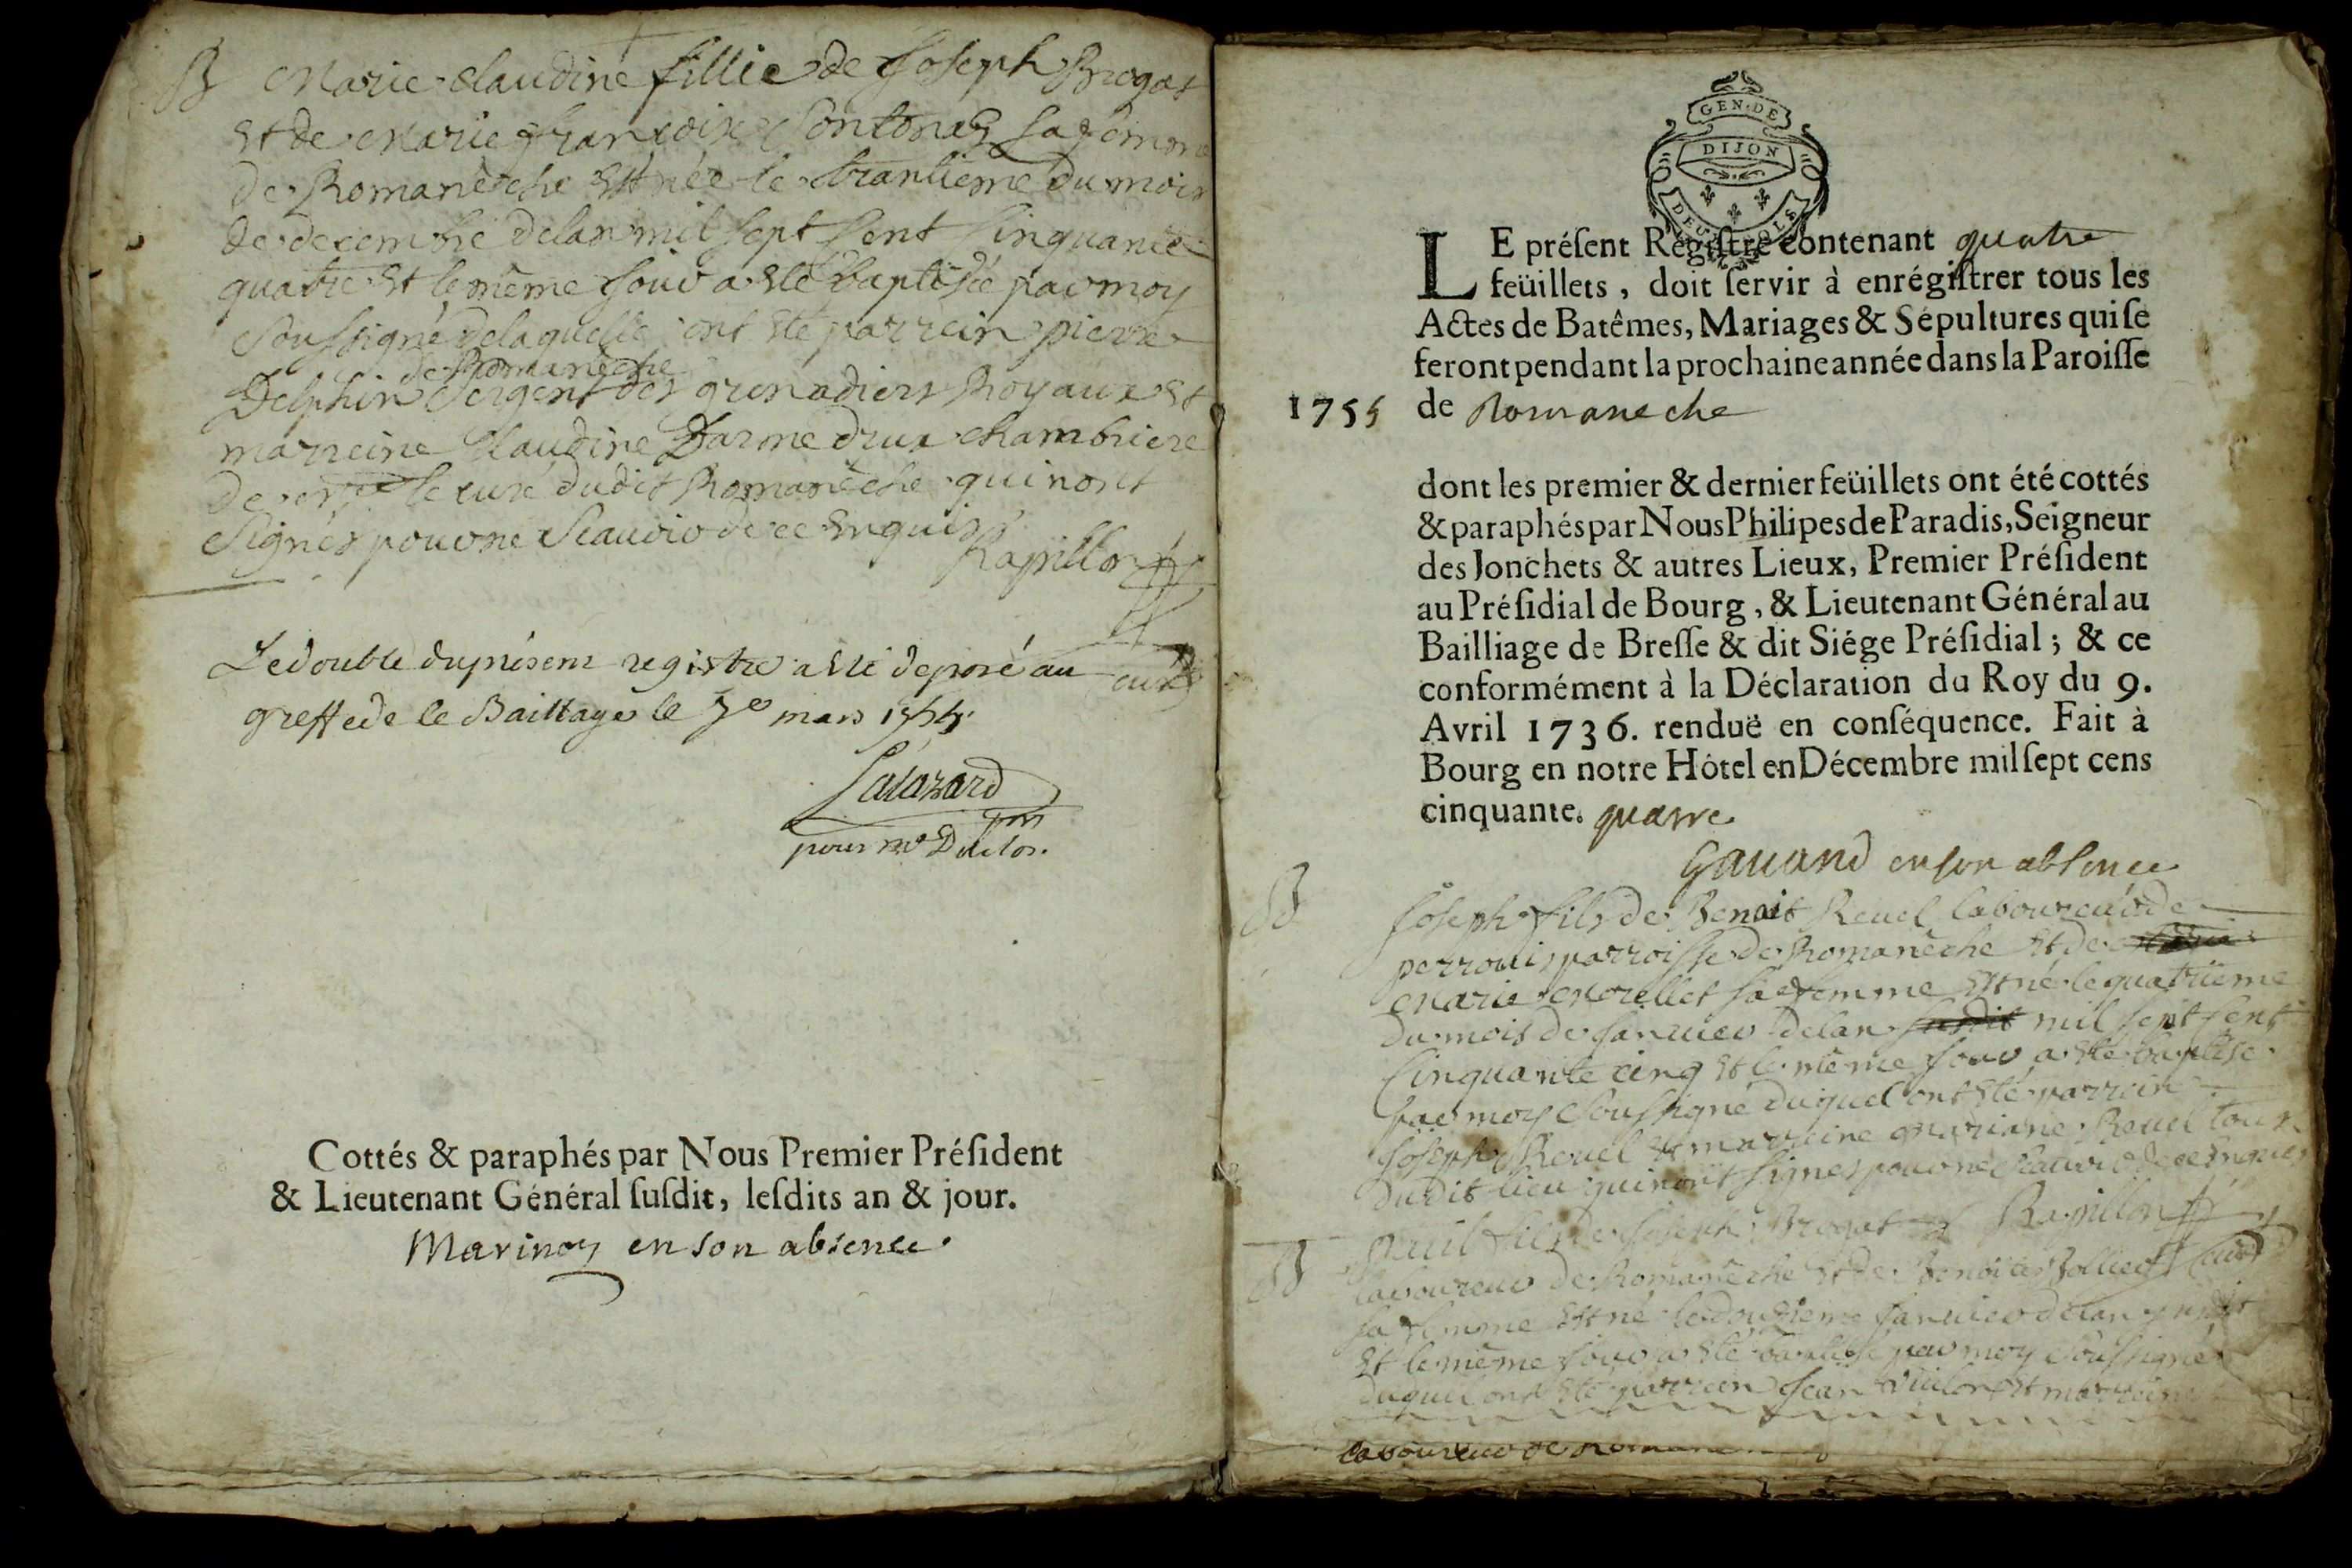 B Marie Claudine fillie de Joseph Brogat
et de Marie francoise Contonas sa femme
de Romanêche est née le trantieme du mois
de decembre de lan mil sept sent sinquante
quatre et le même jour a été baptisée par moy
soussigné de laquelle ont été parrein pierre
de Romanêche
Delphin sergent des grenadiers Royaux et
marreine Claudine Darme chambriere
de le curé dudit Romanêche qui nont
signés pour ne scavoir de ce enquis
Rapillon
curé
Le double du présent registre a été deposé au
greffe de le Baillage le 3e mars 1755
Lalazard
pour Mr Duclos.
Cottés & paraphés par Nous Premier Président
& Lieutenant Général susdit, lesdits an & jour.
Marinoy en son absence.
GEN. DE
DIJON
LE présent Régistre contenant quatre
feüillets, doit servir à enrégistrer tous les
Actes de Batêmes, Mariages & Sépultures qui se
feront pendant la prochaine année dans la Paroisse
1755 de Romaneche
dont les premier & dernier feüillets ont été cottés
& paraphés par Nous Philipes de Paradis, Seigneur
des Jonchets & autres Lieux, Premier Président
au Présidial de Bourg, & Lieutenant Général au
Bailliage de Bresse & dit Siége Présidial; & ce
conformément à la Déclaration du Roy du 9.
Avril 1736. renduë en conséquence. Fait à
Bourg en notre Hôtel en Décembre mil sept cens
cinquante. quatre
Gauand en son absence
B Joseph fils de Benoit Revel laboureur de
perrouis parroisse de Romanêche et de
Marie Morellet sa femme est né le quatrieme
du mois de janvier de lan susdit mil sept sent
sinquante cinq et le même jour a été baptisé
par moy soussigné duquel ont été parrein
Joseph Revel et marreine Mariane Revel tous
dudit lieu qui nont signés pour ne scavoir de ce enquis
Rapillon
curé
B fils de Joseph Brogat
laboureur de Romanêche et de Benoite Bollier
sa femme est né le douzieme janvier de lan susdit
et le même jour a été baptisé par moy soussigné
duquel ont été parrein Jean et marreine
laboureur de Romane